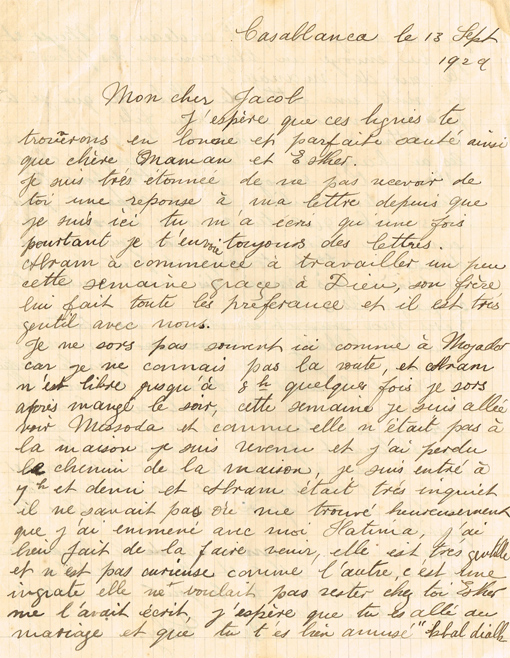 Casablanca le 13 Sept
1929
Mon cher Jacob
J'espère que ces lignes te
trouverons en bonne et parfaite santé ainsi
que chère Maman et Esher.
Je suis trés étonnée de ne pas recevoir de
toi une reponse à ma lettre depuis que
je suis ici tu m'a écris qu'une fois
pourtant je t'envoie toujours des lettres.
Abram à commencé à travailler un peu
cette semaine grace à Dieu, son frère
lui fait toute les préférance et il est trés
gentil avec nous.
Je ne sors pas souvent ici comme à Mogador
car je ne connais pas la route, et Abram
n'est libre jusqu'à 8h quelques fois je sors
aprés mangé le soir, cette semaine je suis allée
voir Massoda et comme elle n'était pas à
la maison je suis revenu et j'ai perdu
le chemin de la maison, je suis entré à
7h et demi et Abram était trés inquiet
il ne savait pas où me trouvé heureusement
que j'ai emmené avec moi Hatima, j'ai
bien fait de la faire venir, elle est tres gentille
et n'est pas curieuse comme l'autre, c'est une
ingrate elle ne voulait pas rester chez toi Esher
me l'avait écrit, j'espère que tu es allé au
mariage et que tu t'es bien amusé